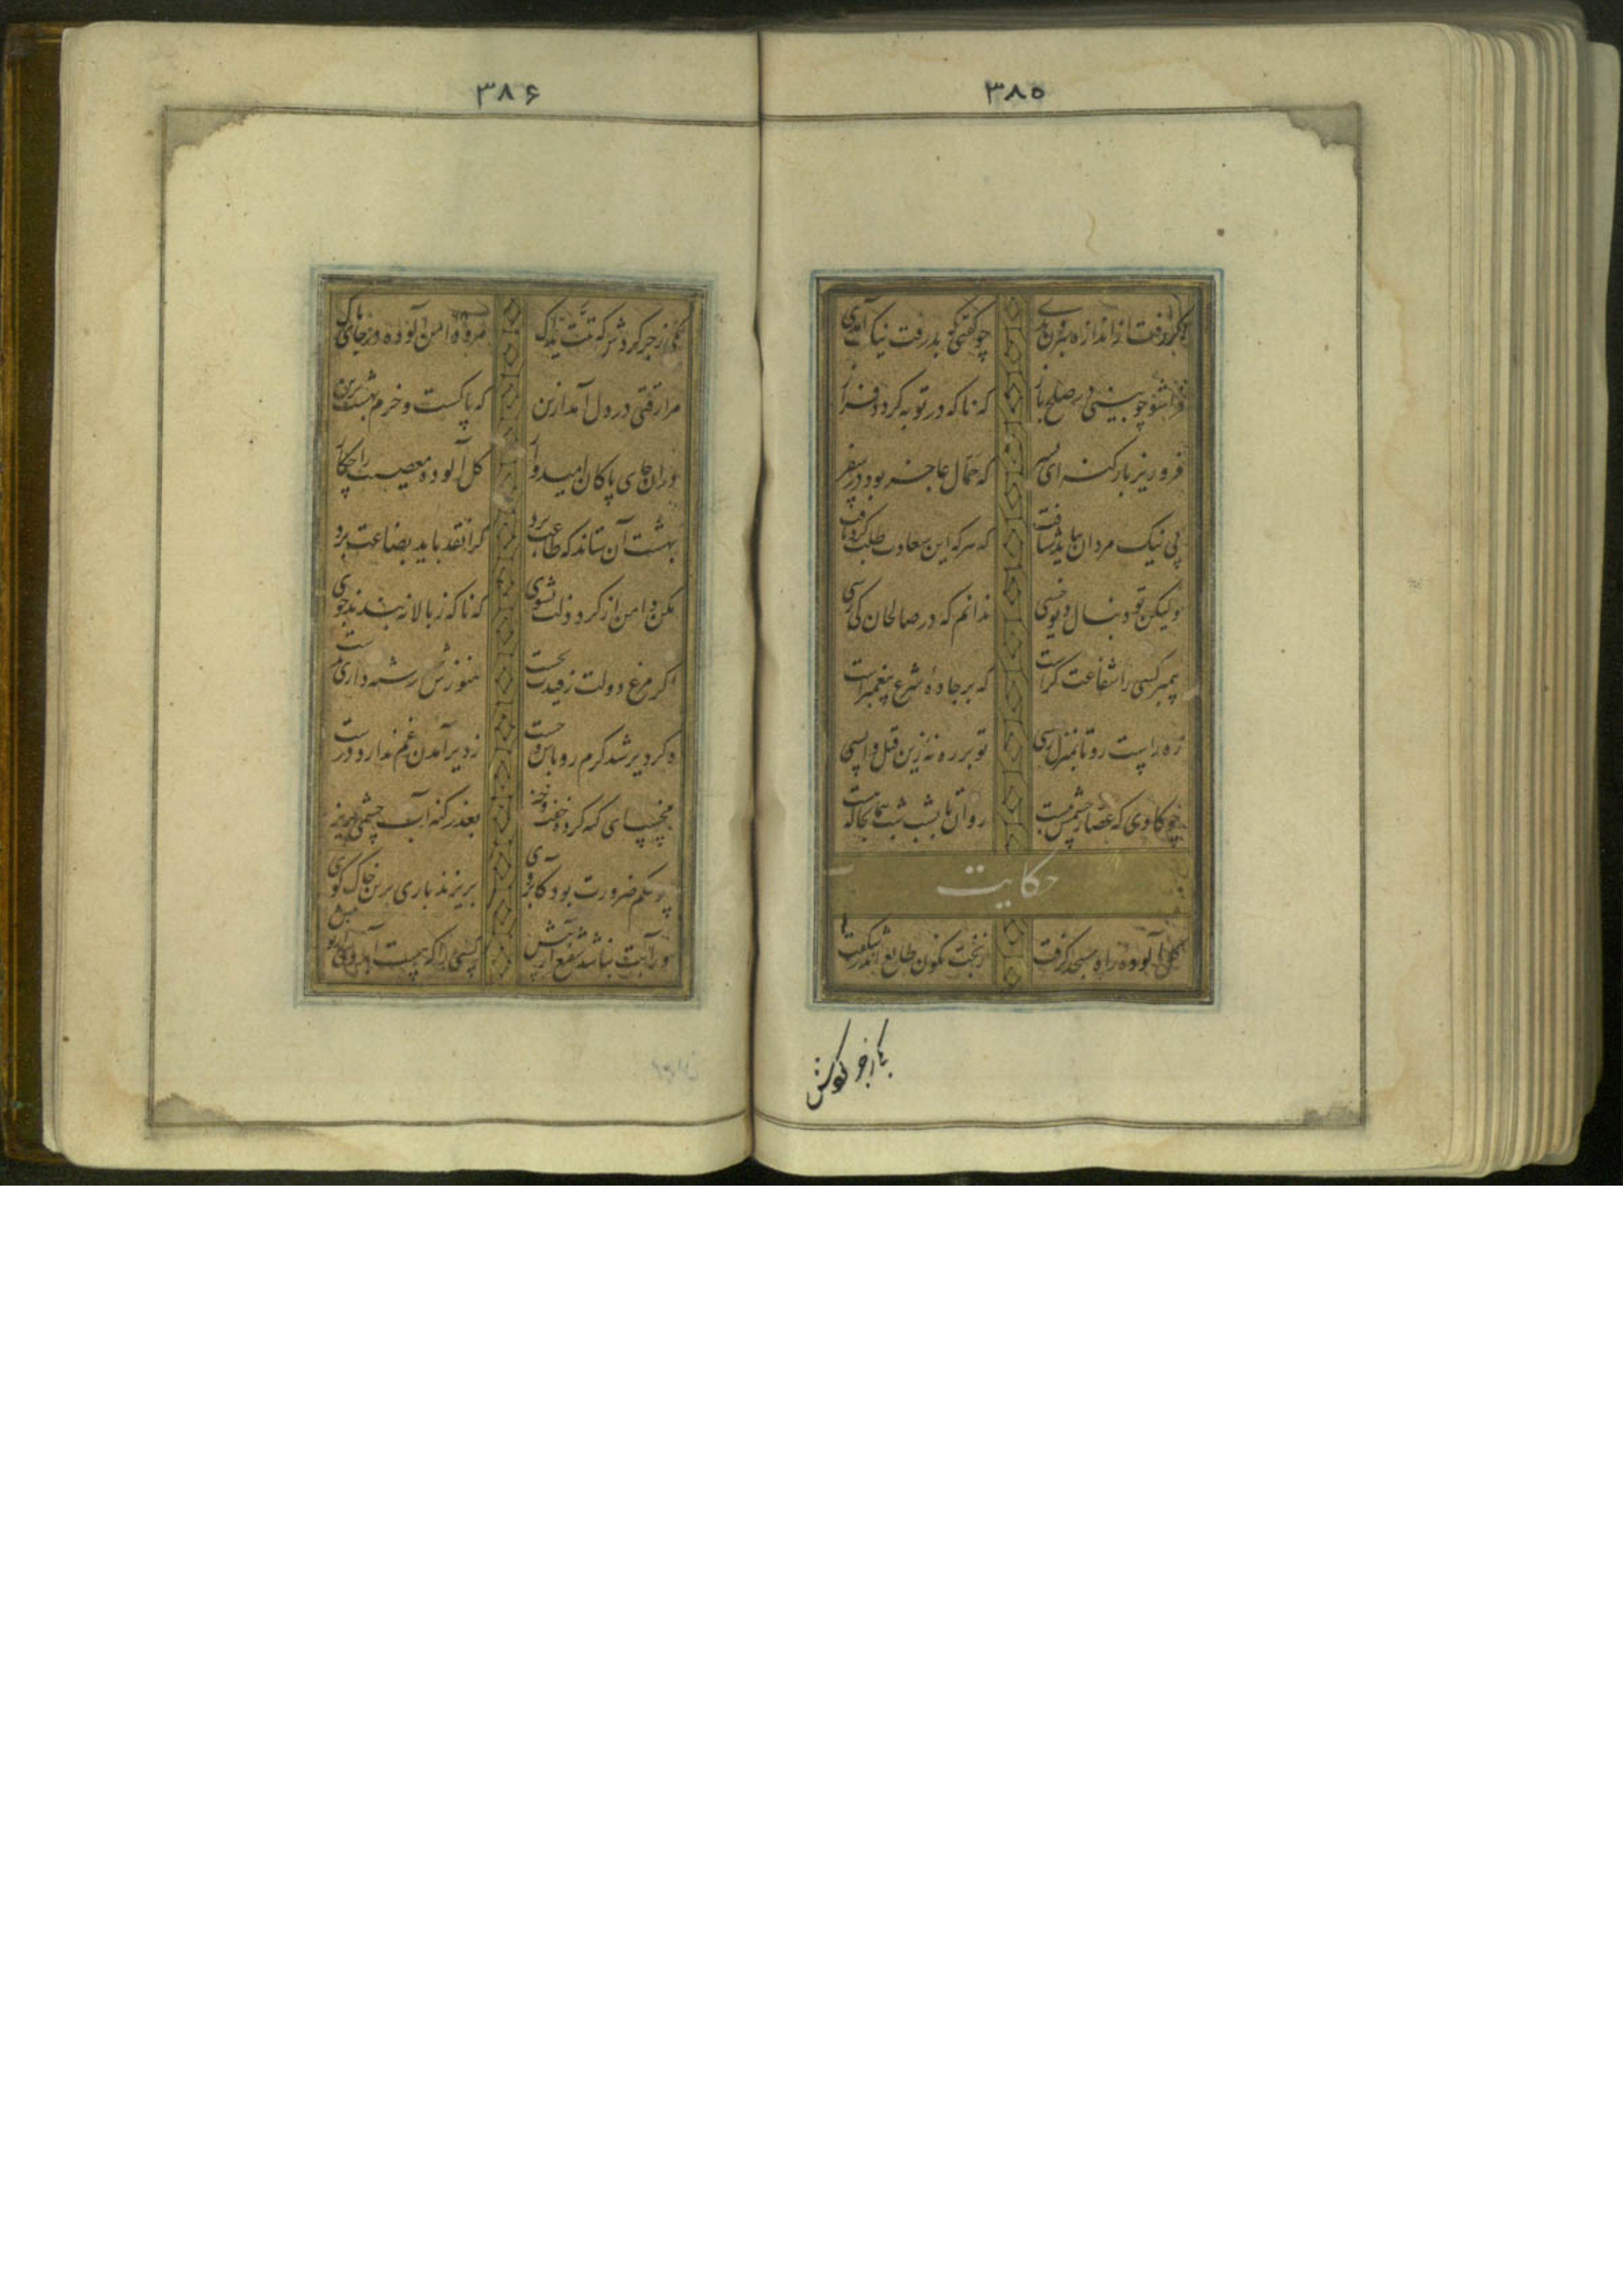 ۳۸۵
وگر رفت از اندازه بیرون بدی چو گفتی که بد رفت نیک آمدی
فرا شو چو بینی در صلح باز که ناگه در توبه گردد فراز
فرو ریز بار گنه ای پسر که حمال عاجز بود در سفر
پی نیک مردان بباید شتافت که هر که این سعادت طلب کرد یافت
ولیکن تو دنبال دیو خسی ندانم که در صالحان کی رسی
پیمبر کسی را شفاعت گرست که بر جادهٔ شرع پیغمبرست
ره راست رو تا بمنزل رسی تو بر ره نهٔ زین قبل واپسی
چو گاوی که عصار چشمش ببست دوان تا بشب شب همانجا که هست
حکایت
گل آلودهٔ راه مسجد گرفت ز بخت نگون طالع اندر شگفت
۳۸۶
یکی زجر کردش که تبت یداک مرو دامن آلوده در جای پاک
مرا رقتی در دل آمد ازین که پاکست و خرم بهشت برین
در ان جای پاکان امیدوار گل آلودهٔ معصیت را چکار
بهشت آن ستاند که طاعت برد کرا نقد باید بضاعت برد
مکن دامن از گرد ذلت بشوی که ناگه ز بالا ببندند جوی
اگر مرغ دولت ز قیدت بجست هنوزش سر رشته داری بدست
وگر دیر شد گرم رو باش و چست ز دیر آمدن غم ندارد درست
مخسب ای گنه کرده خفته خیز بعذر گنه آب چشمی بریز
چو حکم ضرورت بود کآبروی بریزند باری برین خاک کوی
ور آبت نباشد شفیع آر پیش کسی را که هست آبروی از تو بیش